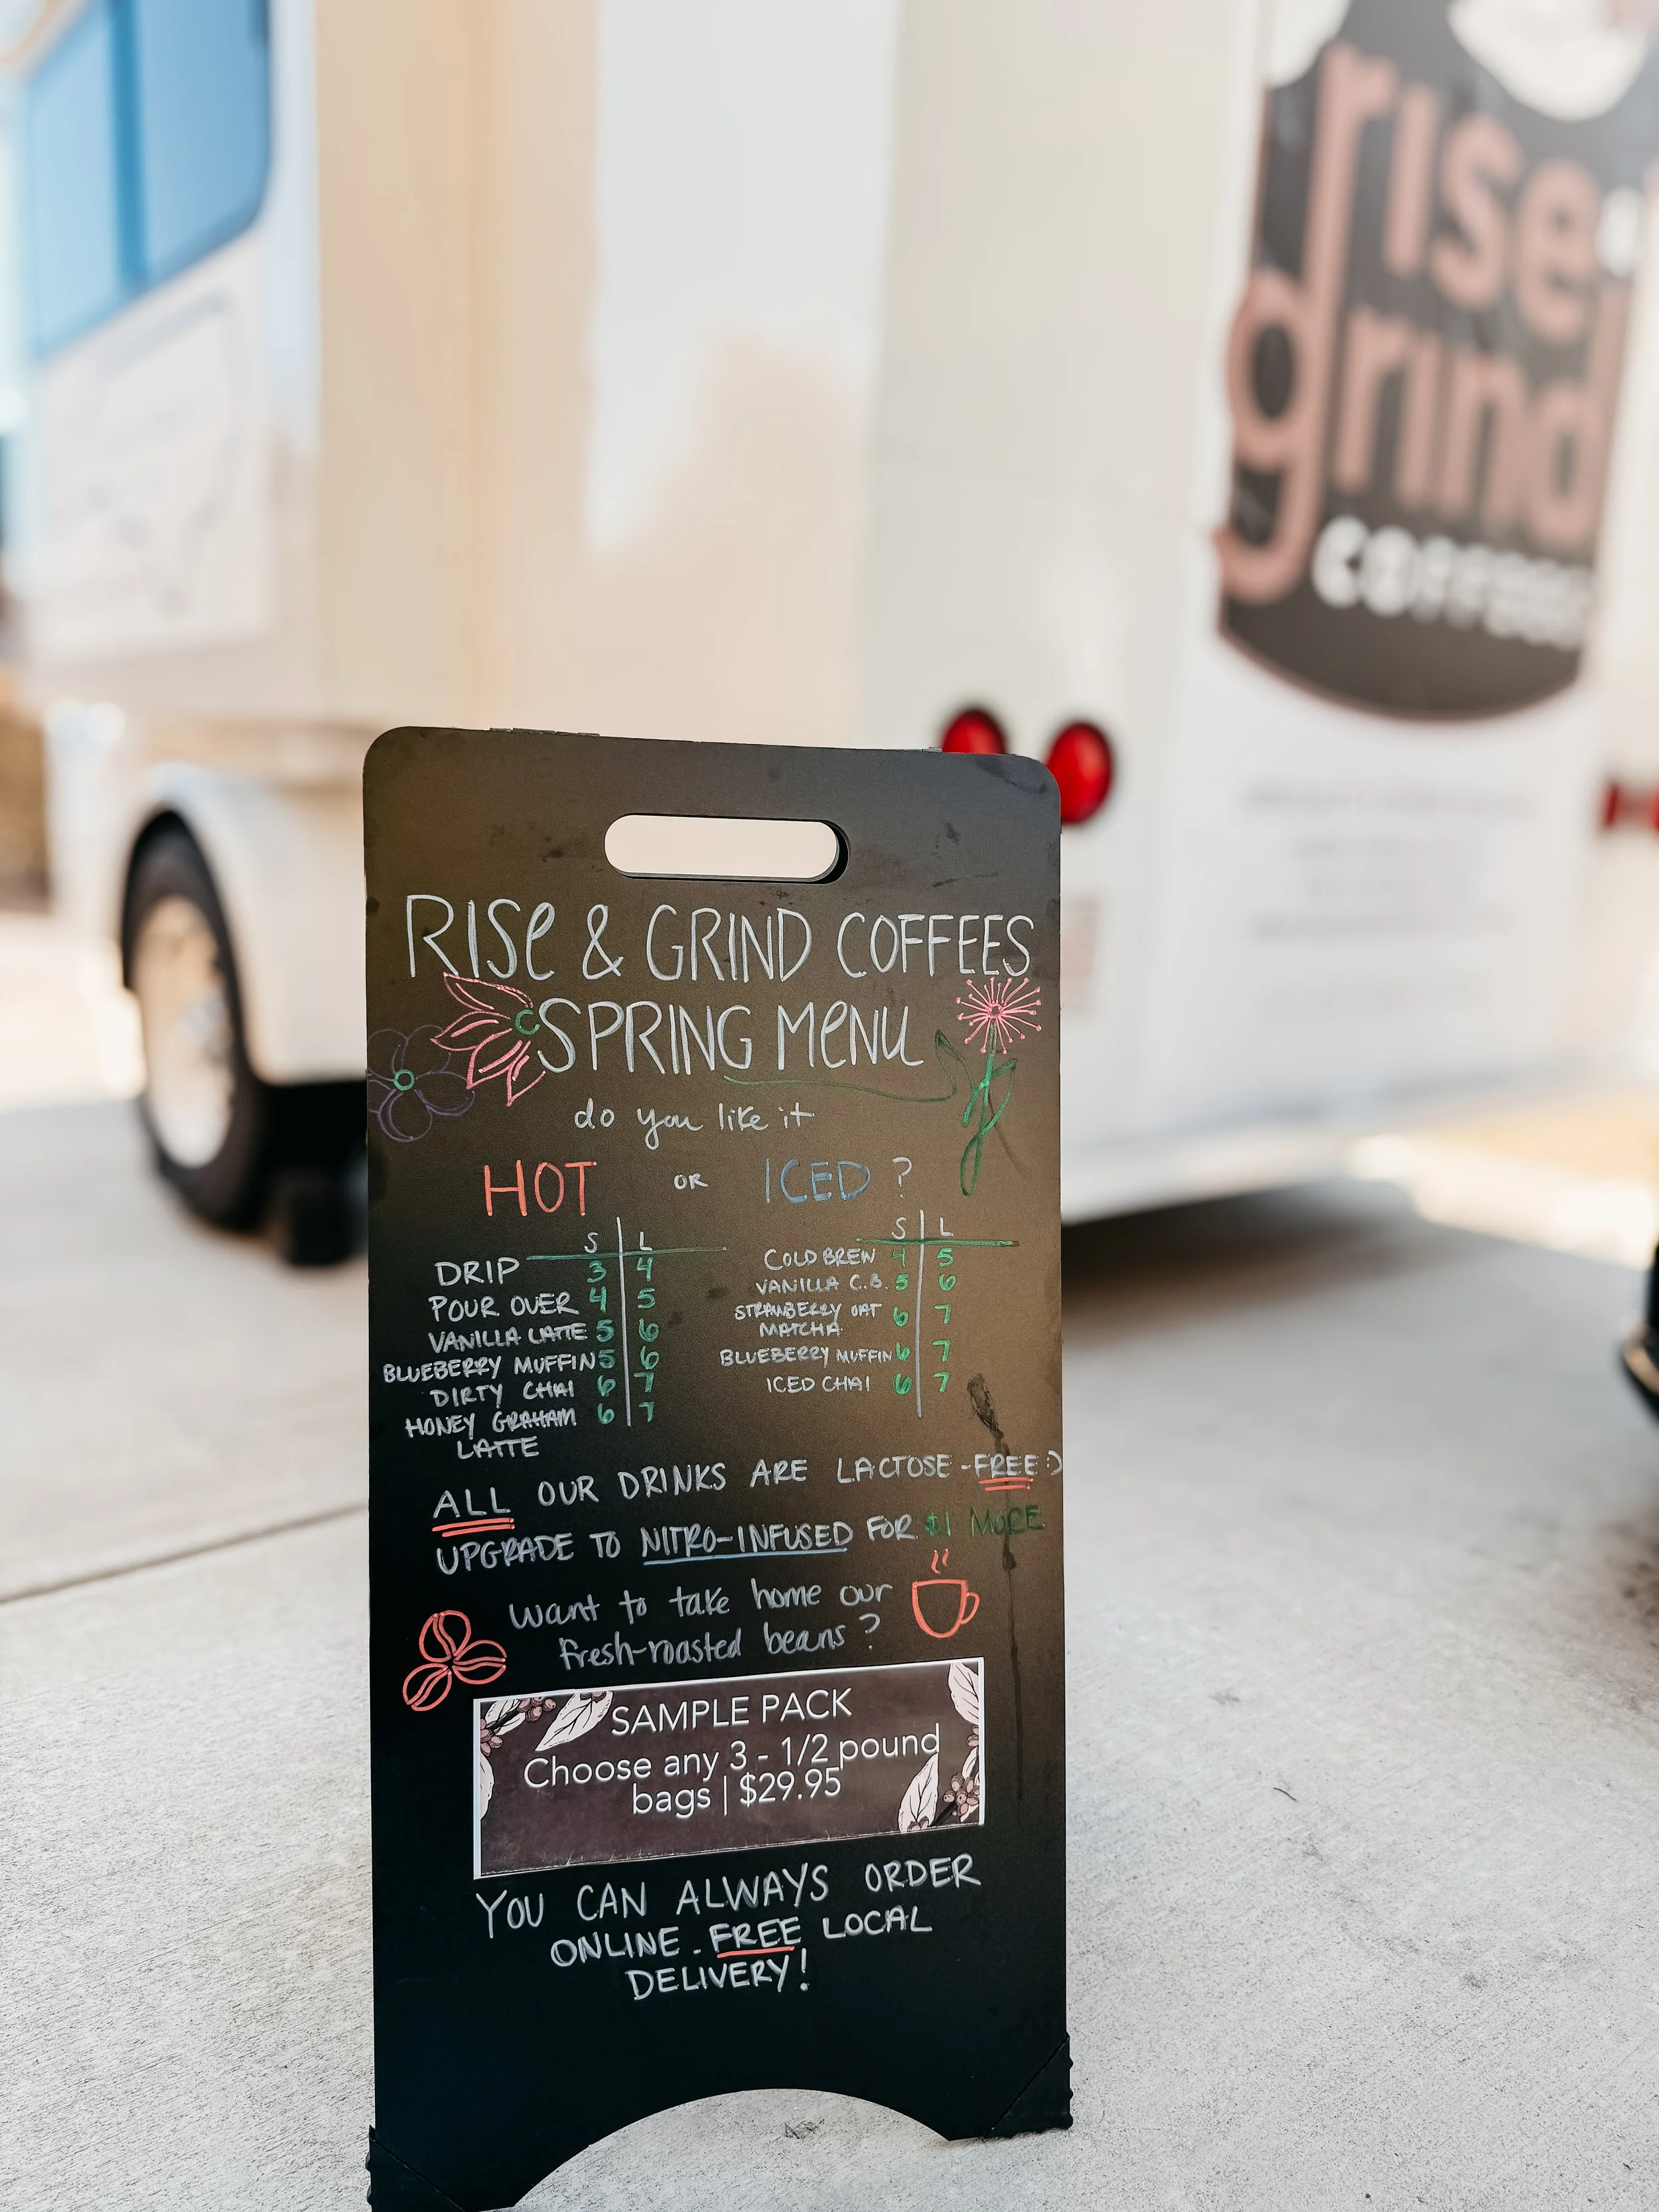 rise
grind
coffees
RISE & GRIND COFFEES
SPRING MENU
do you like it
HOT OR ICED ?
S L
DRIP 3 4
POUR OVER 4 5
VANILLA LATTE 5 6
BLUEBERRY MUFFIN 5 6
DIRTY CHAI 6 7
HONEY GRAHAM 6 7
LATTE
S L
COLD BREW 4 5
VANILLA C.B. 5 6
STRAWBERRY OAT 6 7
MATCHA
BLUEBERRY MUFFIN 6 7
ICED CHAI 6 7
ALL OUR DRINKS ARE LACTOSE-FREE :)
UPGRADE TO NITRO-INFUSED FOR $1 MORE
Want to take home our
fresh-roasted beans?
SAMPLE PACK
Choose any 3 - 1/2 pound
bags | $29.95
YOU CAN ALWAYS ORDER
ONLINE - FREE LOCAL
DELIVERY!